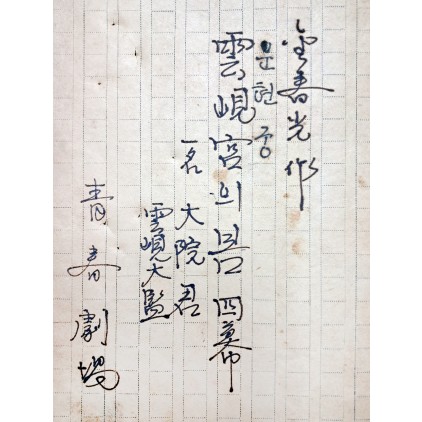 金春光 作
운현궁
雲峴宮의 봄 四幕
一名 大院君
雲峴大監
青春劇場